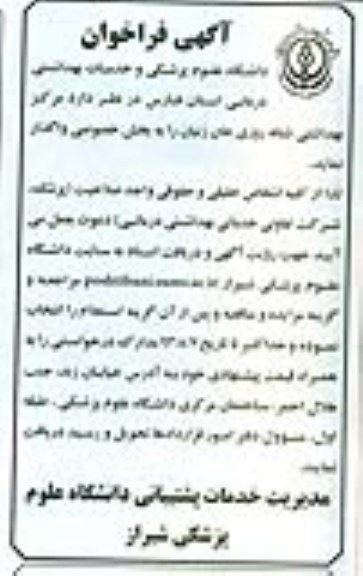 آگهی فراخوان
دانشگاه علوم پزشکی و خدمات بهداشتی
درمانی استان فارس در نظر دارد مرکز
بهداشتی شبانه روزی خان زنیان را به بخش خصوصی واگذار
نماید.
لذا از کلیه اشخاص حقیقی و حقوقی واجد صلاحیت (پزشک،
شرکت تعاونی خدماتی بهداشتی درمانی) دعوت بعمل می
آید جهت رؤیت آگهی و دریافت اسناد به سایت دانشگاه
علوم پزشکی شیراز مراجعه و
گزینه مزایده و مناقصه و پس از آن گزینه استعلام را انتخاب
نموده و حداکثر تا تاریخ مدارک درخواستی را به
همراه قیمت پیشنهادی خود به آدرس خیابان زند، جنب
هلال احمر، ساختمان مرکزی دانشگاه علوم پزشکی، طبقه
اول، مسوول دفتر امور قراردادها تحویل و رسید دریافت
نمایند.
مدیریت خدمات پشتیبانی دانشگاه علوم
پزشکی شیراز